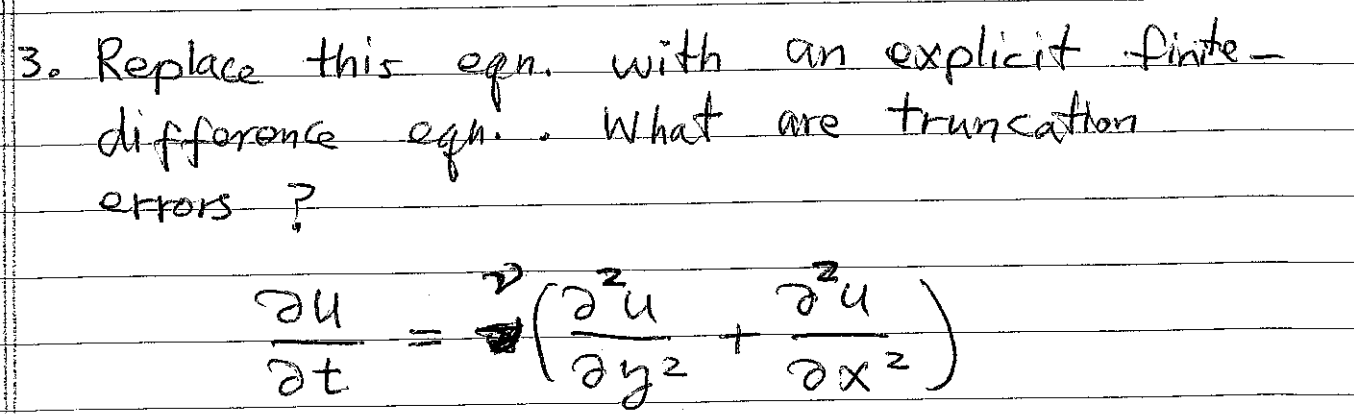 3. Replace this eqn. with an explicit finite-
difference eqn.. What are truncation
errors ?
∂u/∂t = ν(∂²u/∂y² + ∂²u/∂x²)